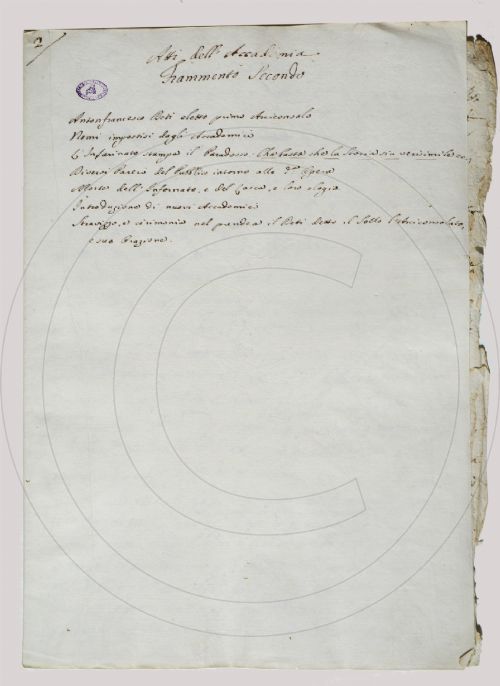 2
Atti dell'Accademia
Frammento Secondo
Antonfrancesco Beti eletto primo Arciconsolo
Nomi impostisi dagli Accademici
L'Infarinato stampa il Paradosso. Che basta che la Storia sia verisimile ec.
Diversi Pareri del Pubblico intorno alla d.ª Opera
Morte dell'Infornato, e del Carca, e loro elogio
Introduzione di nuovi Accademici
Stravizzo, e cirimonia nel prendere il Beti detto il Sollo l'Arciconsolato,
e sua Orazione.